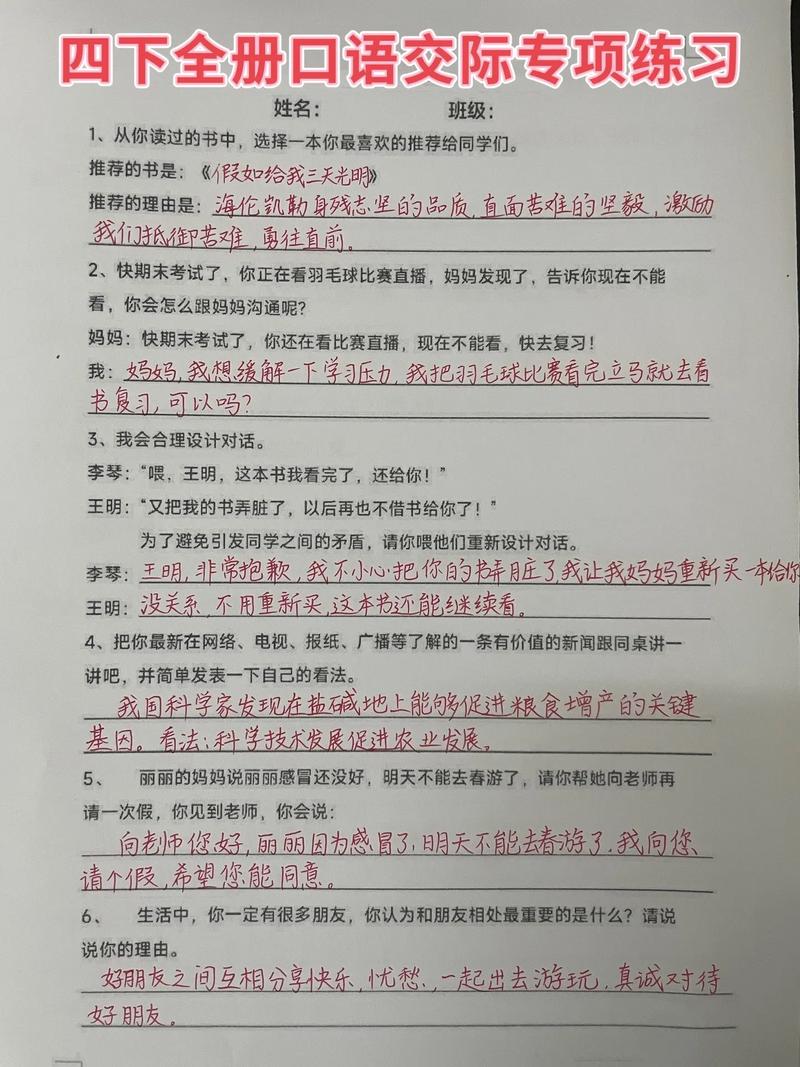 四下全册口语交际专项练习
姓名： 班级：
1、从你读过的书中，选择一本你最喜欢的推荐给同学们。
推荐的书是：《假如给我三天光明》
推荐的理由是：海伦凯勒身残志坚的品质，直面苦难的坚毅，激励
我们抵御苦难，勇往直前。
2、快期末考试了，你正在看羽毛球比赛直播，妈妈发现了，告诉你现在不能
看，你会怎么跟妈妈沟通呢？
妈妈：快期末考试了，你还在看比赛直播，现在不能看，快去复习！
我：妈妈，我想缓解一下学习压力，我把羽毛球比赛看完立马就去看
书复习，可以吗？
3、我会合理设计对话。
李琴：“喂，王明，这本书我看完了，还给你！”
王明：“又把我的书弄脏了，以后再也不借书给你了！”
为了避免引发同学之间的矛盾，请你喂他们重新设计对话。
李琴：王明，非常抱歉，我不小心把你的书弄脏了，我让我妈妈重新买一本给你
王明：没关系，不用重新买，这本书还能继续看。
4、把你最新在网络、电视、报纸、广播等了解的一条有价值的新闻跟同桌讲一
讲吧，并简单发表一下自己的看法。
我国科学家发现在盐碱地上能够促进粮食增产的关键
基因。看法：科学技术发展促进农业发展。
5、 丽丽的妈妈说丽丽感冒还没好，明天不能去春游了，请你帮她向老师再
请一次假，你见到老师，你会说：
向老师您好，丽丽因为感冒了，明天不能去春游了，我向您
请个假，希望您能同意。
6、 生活中，你一定有很多朋友，你认为和朋友相处最重要的是什么？请说
说你的理由。
好朋友之间互相分享快乐，忧愁，一起出去游玩，真诚对待
好朋友。